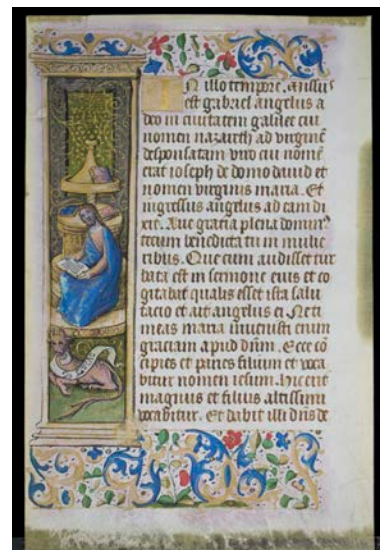 In illo tempore. missus
est gabriel angelus a
deo in ciuitatem galilee cui
nomen nazareth ad virginē
desponsatam viro cui nomē
erat ioseph de domo dauid et
nomen virginis maria. Et
ingressus angelus ad eam di
xit. Aue gratia plena domin9
tecum benedicta tu in mulie
ribus. Que cum audisset tur
bata est in sermone eius et co
gitabat qualis esset ista salu
tacio et ait angelus ei. Ne ti
meas maria inuenisti enim
graciam apud dūm. Ecce cō
cipies et paries filium et voca
bitur nomen iesum. hic erit
magnus et filius altissimi
vocabitur. Et dabit illi dūs de